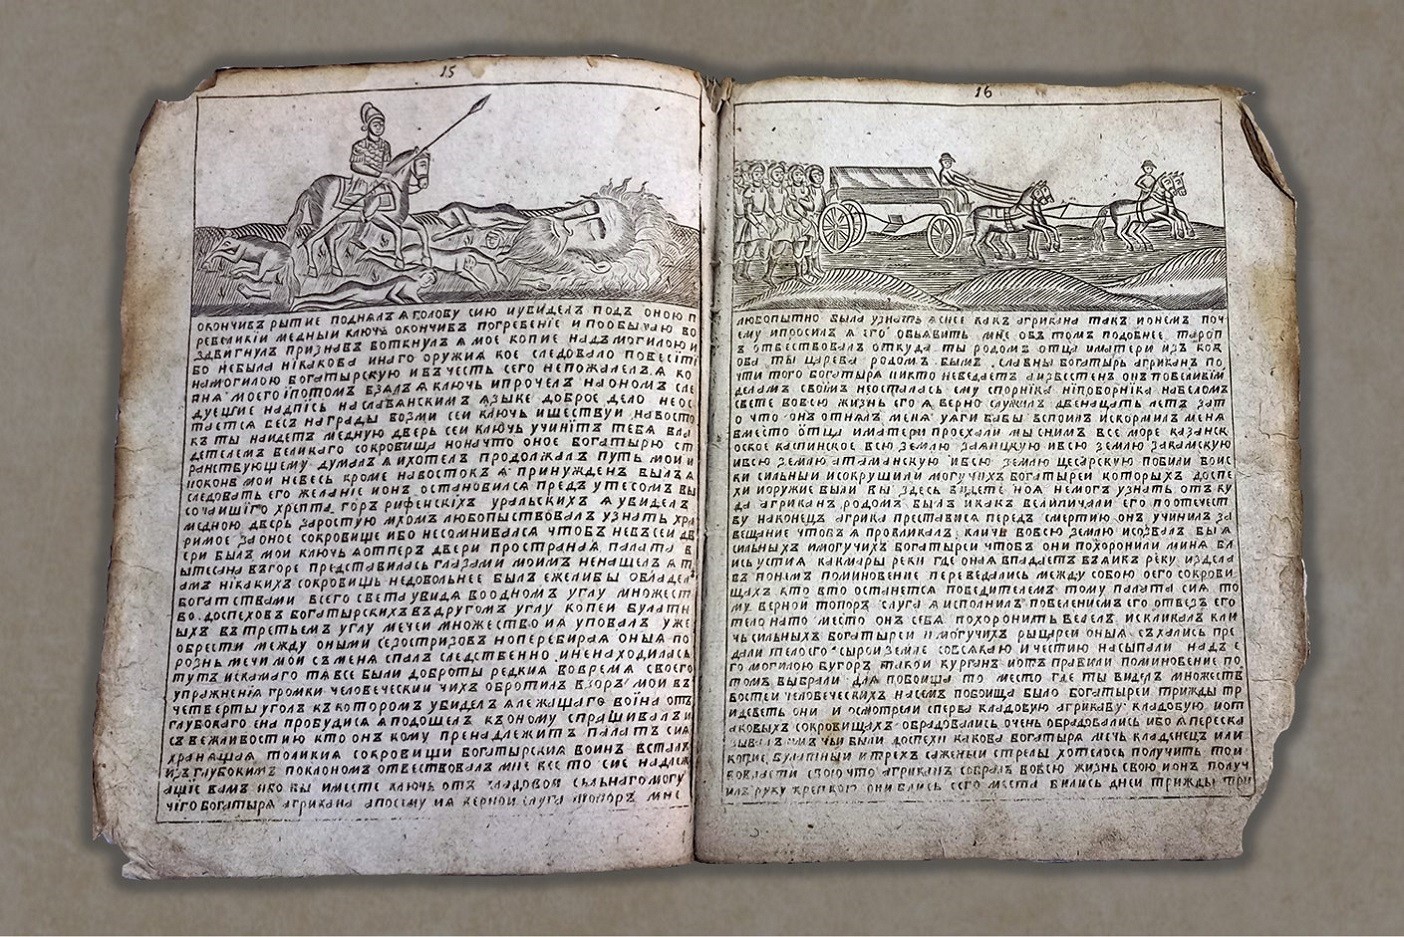 15
окончивъ рытие поднялъ я голову сию иувиделъ подъ оною п
ревеликїи медныи ключь окончивъ погребенїе и пообычаю во
здвигнулъ признавъ воткнулъ я мое копие надъмогилою и
бо небыла нїкакова инаго оружия кое следовало повесїтї
намогилою богатырскую ивъчесть сего непожалелъ я ко
пия моего їпотомъ взялъ я ключь ипрочелъ наономъ сле
дуещие надпїсь наславянскимъ языке доброе дело неос
тается бесъ награды возми сеи ключь ишествуи навосто
къ ты найдетъ медную дверь сеи ключь учинїтъ тебя вла
детелемъ великаго сокровищаноначто оное богатырю ст
ранствующему думалъ я ихотелъ продолжалъ путь мои и
поконь мои невесь кроме навостокъ я принужденъ былъ я
следовать его желанїе ионъ остановился предъ утесомъ вы
сочаишїго хрепта горъ рифенскїхъ уральскихъ я увиделъ
медною дверь заростую мхомъ любопыствовалъ узнать хра
римое заоное сокровище ибо несомнивался чтобъ невъсеи дв
ери былъ мои ключь яотперъ двери пространая палата в
ытесана въгоре представилась глазами моимъ ненашелъ я т
амъ нїкакихъ сокровищь недовольнее былъ ежелибы обладел
богатствами всего света увидя воодномъ углу множест
во доспеховъ богатырскихъ въдругомъ углу копеи булатн
ыхъ въ третьемъ углу мечеи множество ия уповалъ уже
обрести между оными сезостризовъ ноперебирая оныя по
рознь мечи мои съменя спалъ следственно иненаходилась
тутъ искамаго тя все были доброты редкия вовремя своего
упражненїя громки человеческии чихъ обротилъ взоръ мои въ
четверты уголъ къкоторомъ увиделъ ялежащаго воїна отъ
глубокаго сна пробудися яподошелъ къоному спрашивалъ и
съ вежливостию кто онъ кому пренадлежитъ палатъ сия
хранящая толикия сокровищи богатырския воинъ всталъ
изъ глубокимъ поклономъ отвествовалъ мне все то сие надлеж
ащие вамъ яко вы имеете ключь отъ кладовои сильнаго могу
чїго богатыря агрикана апосему ия верной слуга топоръ мне
16
любопытно была узнать яснее какъ агрикана такъ ионемъ поч
ему ипросилъ я его объявить мне объ томъ подобнее тароп
ъ отвествовалъ откуда ты родомъ отца иматери изъ ков
оба ты царева родомъ былъ славны богатырь агриканъ по
чти того богатыря никто неведаетъ аизвестенъ онъ повеликїм
деламъ своїмъ неосталась ему спорнїка нїпоборнїка набеломъ
свете вовсю жизнь его я верно служилъ двенацать летъ зат
о что онъ отнялъ меня уяги бабы вспоилъ искормилъ меня
вместо отца иматери проехали мы снимъ все море казанск
оское каспинское всю землю заяицкую ивсю землю закамскую
ивсю землю атаманскую ивсю землю цесарскую побили воис
ки сильныи исокрушили могучихъ богатыреи которыхъ доспе
хи иоружие были вы здесь видете ноя немогъ узнать отъку
да агриканъ родомъ былъ икакъ величпали его поотечест
ву наконецъ агрика преставися передъ смертию онъ учинилъ за
вещание чтобъ я провликалъ кличь вовсю землю исозвалъ бы я
сильныхъ имогучихъ богатыреи чтобъ они похоронили миня бл
ись устия какмары реки где она впадаетъ въяикъ реку издела
въ понемъ поминовение переведались между собою оего сокрови
щахъ кто вто останется победителемъ тому палата сия то
му верной топоръ слуга я исполнилъ повелениемъ его отвезъ его
тело нато место онъ себя похоронить велелъ искликалъ кли
чь сильныхъ богатыреи имогучихъ рыцареи оныя съхались пре
дали тело его сыроиземле совсякаю ичестию насыпали надъ е
го могилою бугоръ такои курганъ иотъправили поминовение по
томъ выбрали для побоища то место где ты виделъ множеств
востеи человеческихъ насемъ побоища было богатыреи трижды тр
идевять они и осмотрели сперва кладовую агрикаву кладовую иот
аковыхъ сокровищахъ обрадовались очень обрадовались ибо яперескa
зывалъ имъ чьи были доспехи какова богатыря мечь кладенецъ или
копие булатныи итрехъ саженыи стрелы хотелось получить тои
вовласти свою что агриканъ собралъ вовсю жизнь свою ионъ получ
илъ руку крепкою они бились сего места бились днеи трижды три